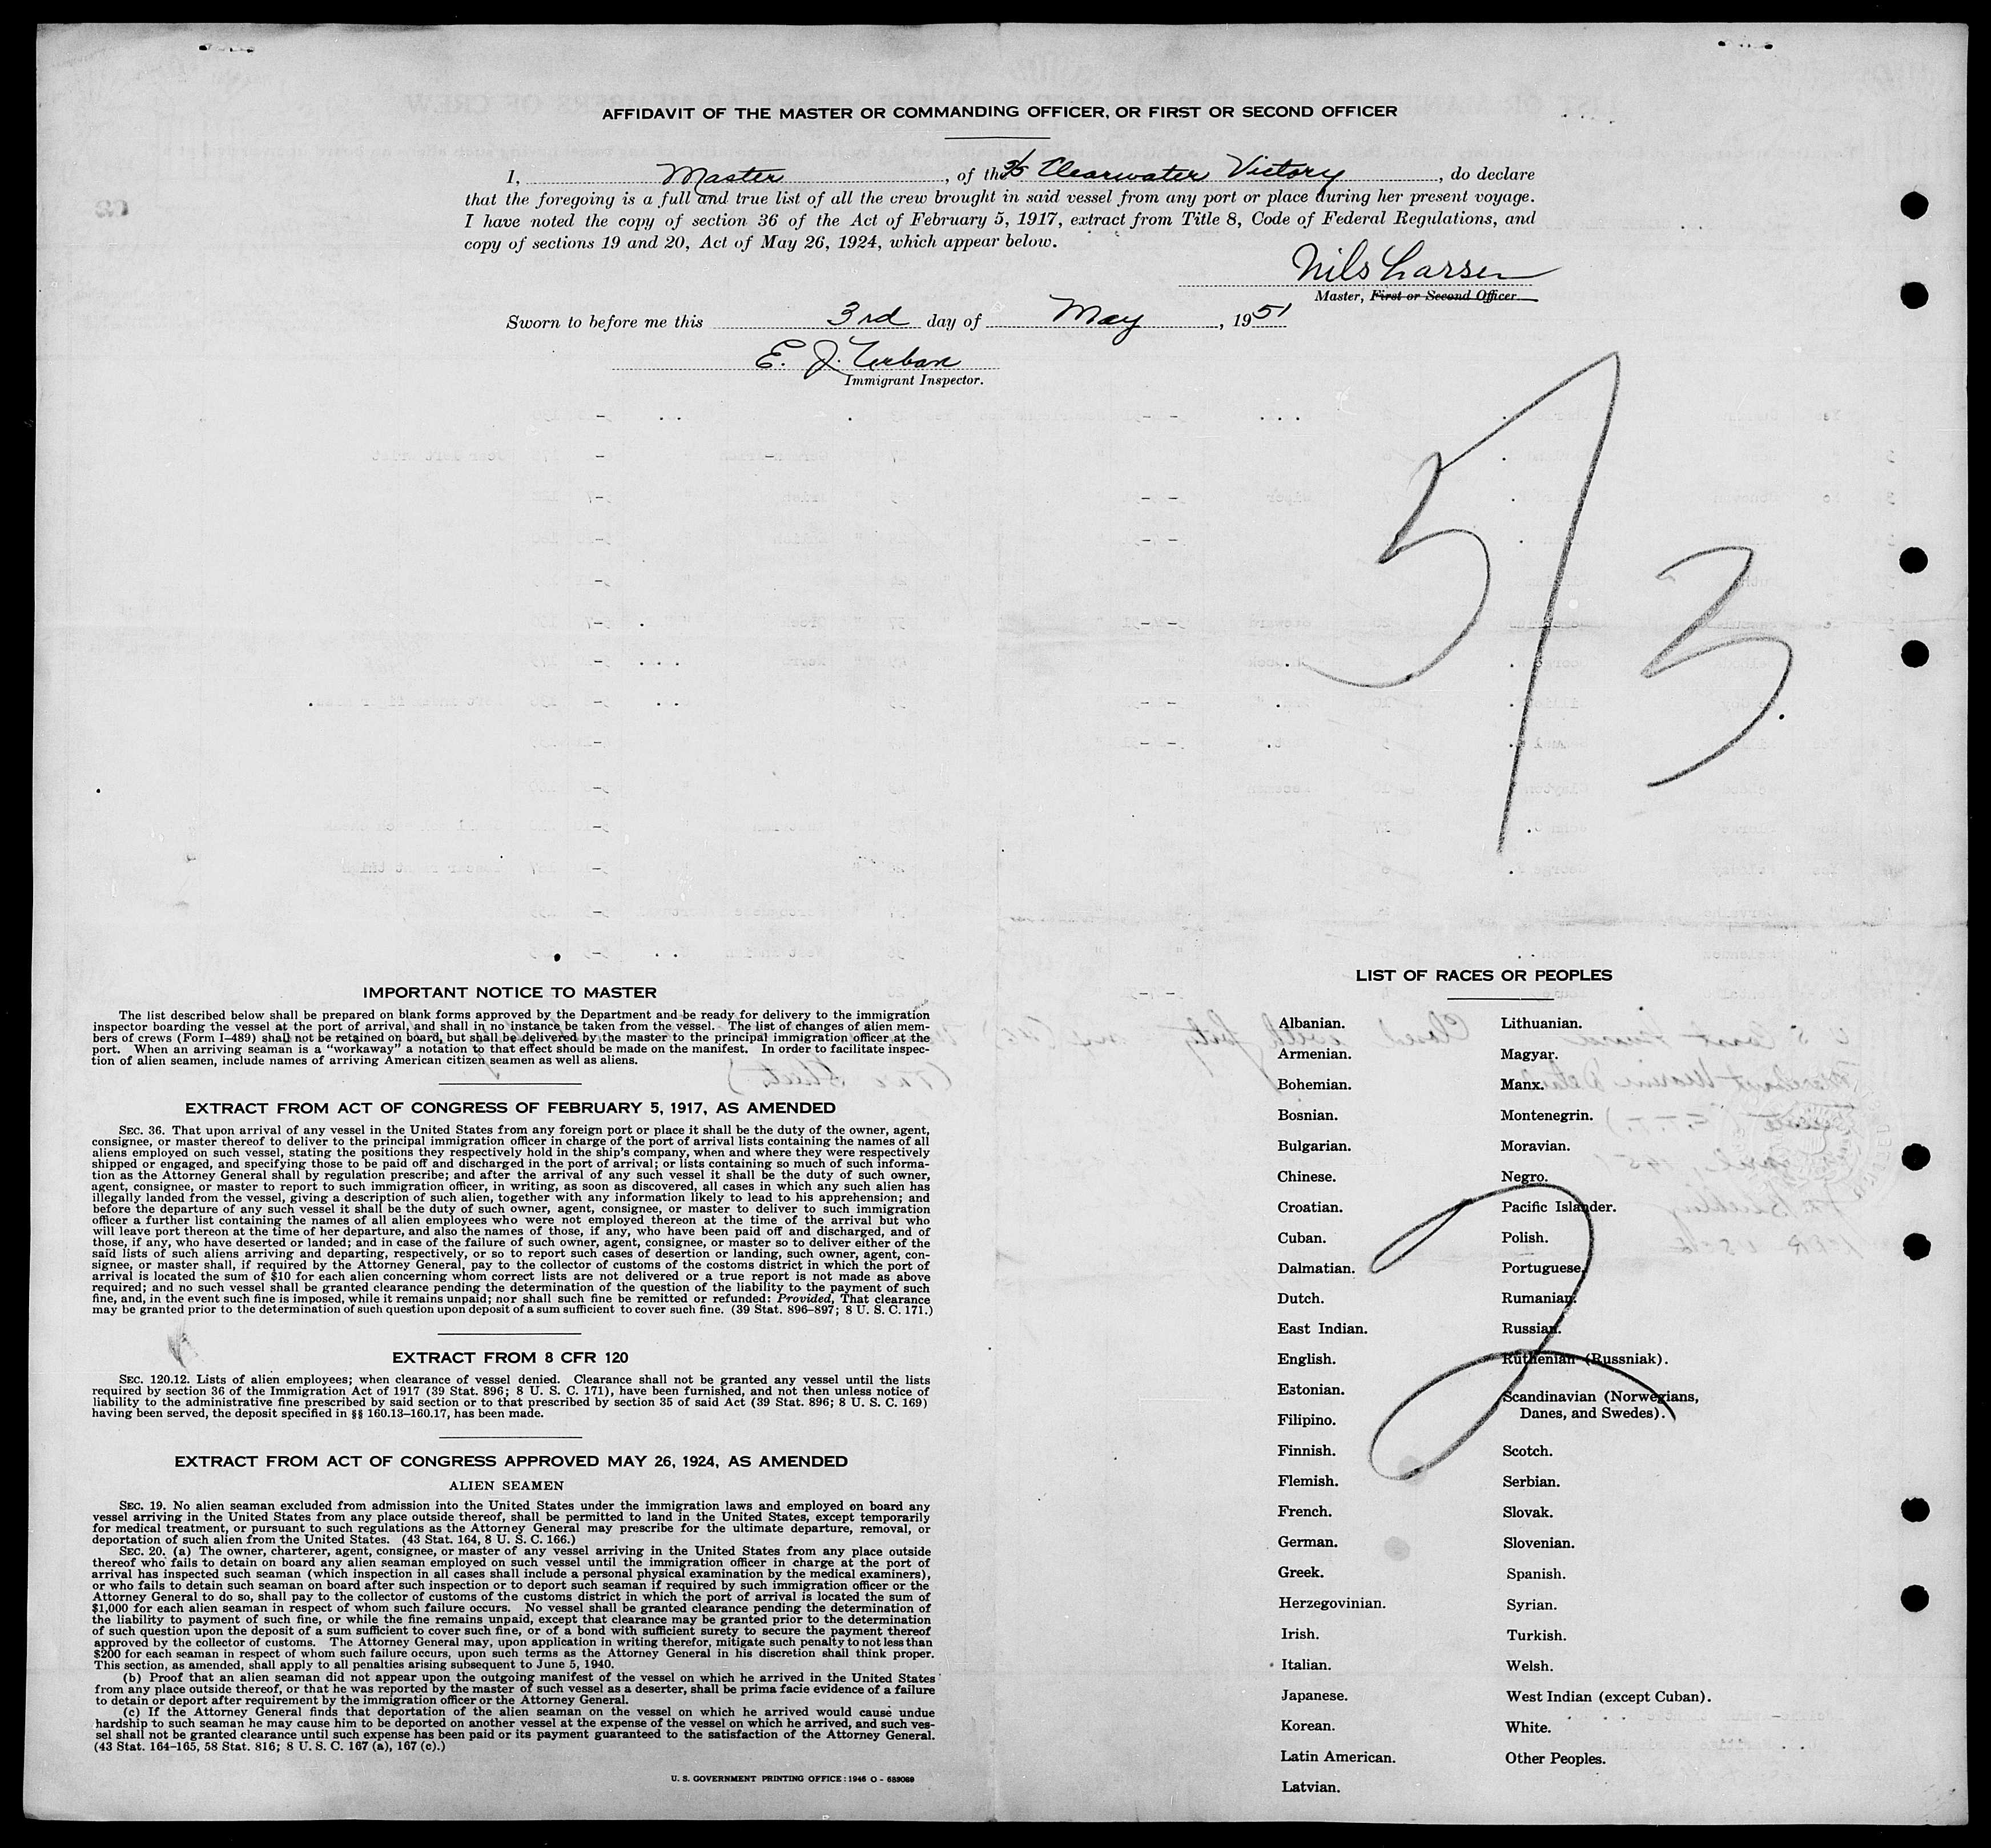 AFFIDAVIT OF THE MASTER OR COMMANDING OFFICER, OR FIRST OR SECOND OFFICER
I, Master, of the S/S Clearwater Victory, do declare
that the foregoing is a full and true list of all the crew brought in said vessel from any port or place during her present voyage.
I have noted the copy of section 36 of the Act of February 5, 1917, extract from Title 8, Code of Federal Regulations, and
copy of sections 19 and 20, Act of May 26, 1924, which appear below.
Nils Larsen
Master, First or Second Officer
Sworn to before me this 3rd day of May, 1951
E. J. Urban
Immigrant Inspector.
5/3
IMPORTANT NOTICE TO MASTER
The list described below shall be prepared on blank forms approved by the Department and be ready for delivery to the immigration
inspector boarding the vessel at the port of arrival, and shall in no instance be taken from the vessel. The list of changes of alien mem-
bers of crews (Form I-489) shall not be retained on board, but shall be delivered by the master to the principal immigration officer at the
port. When an arriving seaman is a "workaway" a notation to that effect should be made on the manifest. In order to facilitate inspec-
tion of alien seamen, include names of arriving American citizen seamen as well as aliens.
EXTRACT FROM ACT OF CONGRESS OF FEBRUARY 5, 1917, AS AMENDED
SEC. 36. That upon arrival of any vessel in the United States from any foreign port or place it shall be the duty of the owner, agent,
consignee, or master thereof to deliver to the principal immigration officer in charge of the port of arrival lists containing the names of all
aliens employed on such vessel, stating the positions they respectively hold in the ship's company, when and where they were respectively
shipped or engaged, and specifying those to be paid off and discharged in the port of arrival; or lists containing so much of such informa-
tion as the Attorney General shall by regulation prescribe; and after the arrival of any such vessel it shall be the duty of such owner,
agent, consignee, or master to report to such immigration officer, in writing, as soon as discovered, all cases in which any such alien has
illegally landed from the vessel, giving a description of such alien, together with any information likely to lead to his apprehension; and
before the departure of any such vessel it shall be the duty of such owner, agent, consignee, or master to deliver to such immigration
officer a further list containing the names of all alien employees who were not employed thereon at the time of the arrival but who
will leave port thereon at the time of her departure, and also the names of those, if any, who have been paid off and discharged, and of
those, if any, who have deserted or landed; and in case of the failure of such owner, agent, consignee, or master so to deliver either of the
said lists of such aliens arriving and departing, respectively, or so to report such cases of desertion or landing, such owner, agent, con-
signee, or master shall, if required by the Attorney General, pay to the collector of customs of the customs district in which the port of
arrival is located the sum of $10 for each alien concerning whom correct lists are not delivered or a true report is not made as above
required; and no such vessel shall be granted clearance pending the determination of the question of the liability to the payment of such
fine, and, in the event such fine is imposed, while it remains unpaid; nor shall such fine be remitted or refunded: Provided, That clearance
may be granted prior to the determination of such question upon deposit of a sum sufficient to cover such fine. (39 Stat. 896-897; 8 U. S. C. 171.)
EXTRACT FROM 8 CFR 120
SEC. 120.12. Lists of alien employees; when clearance of vessel denied. Clearance shall not be granted any vessel until the lists
required by section 36 of the Immigration Act of 1917 (39 Stat. 896; 8 U. S. C. 171), have been furnished, and not then unless notice of
liability to the administrative fine prescribed by said section or to that prescribed by section 35 of said Act (39 Stat. 896; 8 U. S. C. 169)
having been served, the deposit specified in §§ 160.13-160.17, has been made.
EXTRACT FROM ACT OF CONGRESS APPROVED MAY 26, 1924, AS AMENDED
ALIEN SEAMEN
SEC. 19. No alien seaman excluded from admission into the United States under the immigration laws and employed on board any
vessel arriving in the United States from any place outside thereof, shall be permitted to land in the United States, except temporarily
for medical treatment, or pursuant to such regulations as the Attorney General may prescribe for the ultimate departure, removal, or
deportation of such alien from the United States. (43 Stat. 164, 8 U. S. C. 166.)
SEC. 20. (a) The owner, charterer, agent, consignee, or master of any vessel arriving in the United States from any place outside
thereof who fails to detain on board any alien seaman employed on such vessel until the immigration officer in charge at the port of
arrival has inspected such seaman (which inspection in all cases shall include a personal physical examination by the medical examiners),
or who fails to detain such seaman on board after such inspection or to deport such seaman if required by such immigration officer or the
Attorney General to do so, shall pay to the collector of customs of the customs district in which the port of arrival is located the sum of
$1,000 for each alien seaman in respect of whom such failure occurs. No vessel shall be granted clearance pending the determination of
the liability to payment of such fine, or while the fine remains unpaid, except that clearance may be granted prior to the determination
of such question upon the deposit of a sum sufficient to cover such fine, or of a bond with sufficient surety to secure the payment thereof
approved by the collector of customs. The Attorney General may, upon application in writing therefor, mitigate such penalty to not less than
$200 for each seaman in respect of whom such failure occurs, upon such terms as the Attorney General in his discretion shall think proper.
This section, as amended, shall apply to all penalties arising subsequent to June 5, 1940.
(b) Proof that an alien seaman did not appear upon the outgoing manifest of the vessel on which he arrived in the United States
from any place outside thereof, or that he was reported by the master of such vessel as a deserter, shall be prima facie evidence of a failure
to detain or deport after requirement by the immigration officer or the Attorney General.
(c) If the Attorney General finds that deportation of the alien seaman on the vessel on which he arrived would cause undue
hardship to such seaman he may cause him to be deported on another vessel at the expense of the vessel on which he arrived, and such ves-
sel shall not be granted clearance until such expense has been paid or its payment guaranteed to the satisfaction of the Attorney General.
(43 Stat. 164-165, 58 Stat. 816; 8 U. S. C. 167 (a), 167 (c).)
U. S. GOVERNMENT PRINTING OFFICE : 1946 O - 689069
LIST OF RACES OR PEOPLES
Albanian.
Armenian.
Bohemian.
Bosnian.
Bulgarian.
Chinese.
Croatian.
Cuban.
Dalmatian.
Dutch.
East Indian.
English.
Estonian.
Filipino.
Finnish.
Flemish.
French.
German.
Greek.
Herzegovinian.
Irish.
Italian.
Japanese.
Korean.
Latin American.
Latvian.
Lithuanian.
Magyar.
Manx.
Montenegrin.
Moravian.
Negro.
Pacific Islander.
Polish.
Portuguese.
Rumanian.
Russian.
Ruthenian (Russniak).
Scandinavian (Norwegians,
Danes, and Swedes).
Scotch.
Serbian.
Slovak.
Slovenian.
Spanish.
Syrian.
Turkish.
Welsh.
West Indian (except Cuban).
White.
Other Peoples.
2